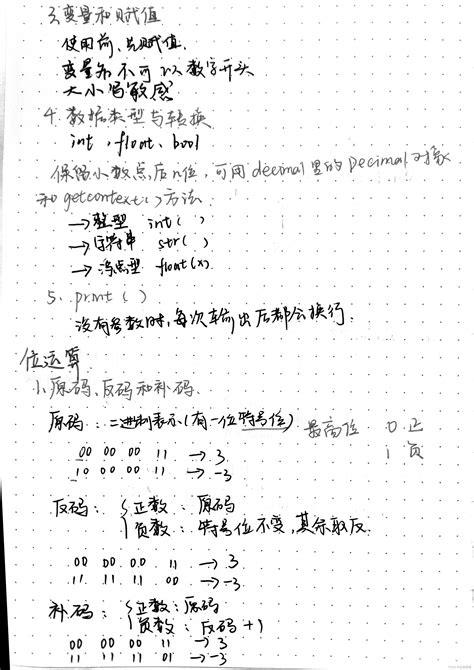 3.变量和赋值
使用前,先赋值.
变量名不可以数字开头
大小写敏感
4.数据类型与转换
int , float、bool
保留小数点后n位,可用decimal里的Decimal对象
和getcontext()方法.
→整型 int( )
→字符串 str( )
→浮点型 float(x)
5. print ( )
没有参数时,每次输出后都会换行.
位运算
1.原码、反码和补码.
原码:二进制表示(有一位符号位) 最高位 0 正
1 负
00 00 00 11 → 3
10 00 00 11 → -3
反码: { 正数: 原码
负数: 符号位不变,其余取反.
00 00 00 11 → 3
11 11 11 00 → -3
补码: { 正数:原码
负数: 反码 +1
00 00 00 11 → 3
11 11 11 01 → -3